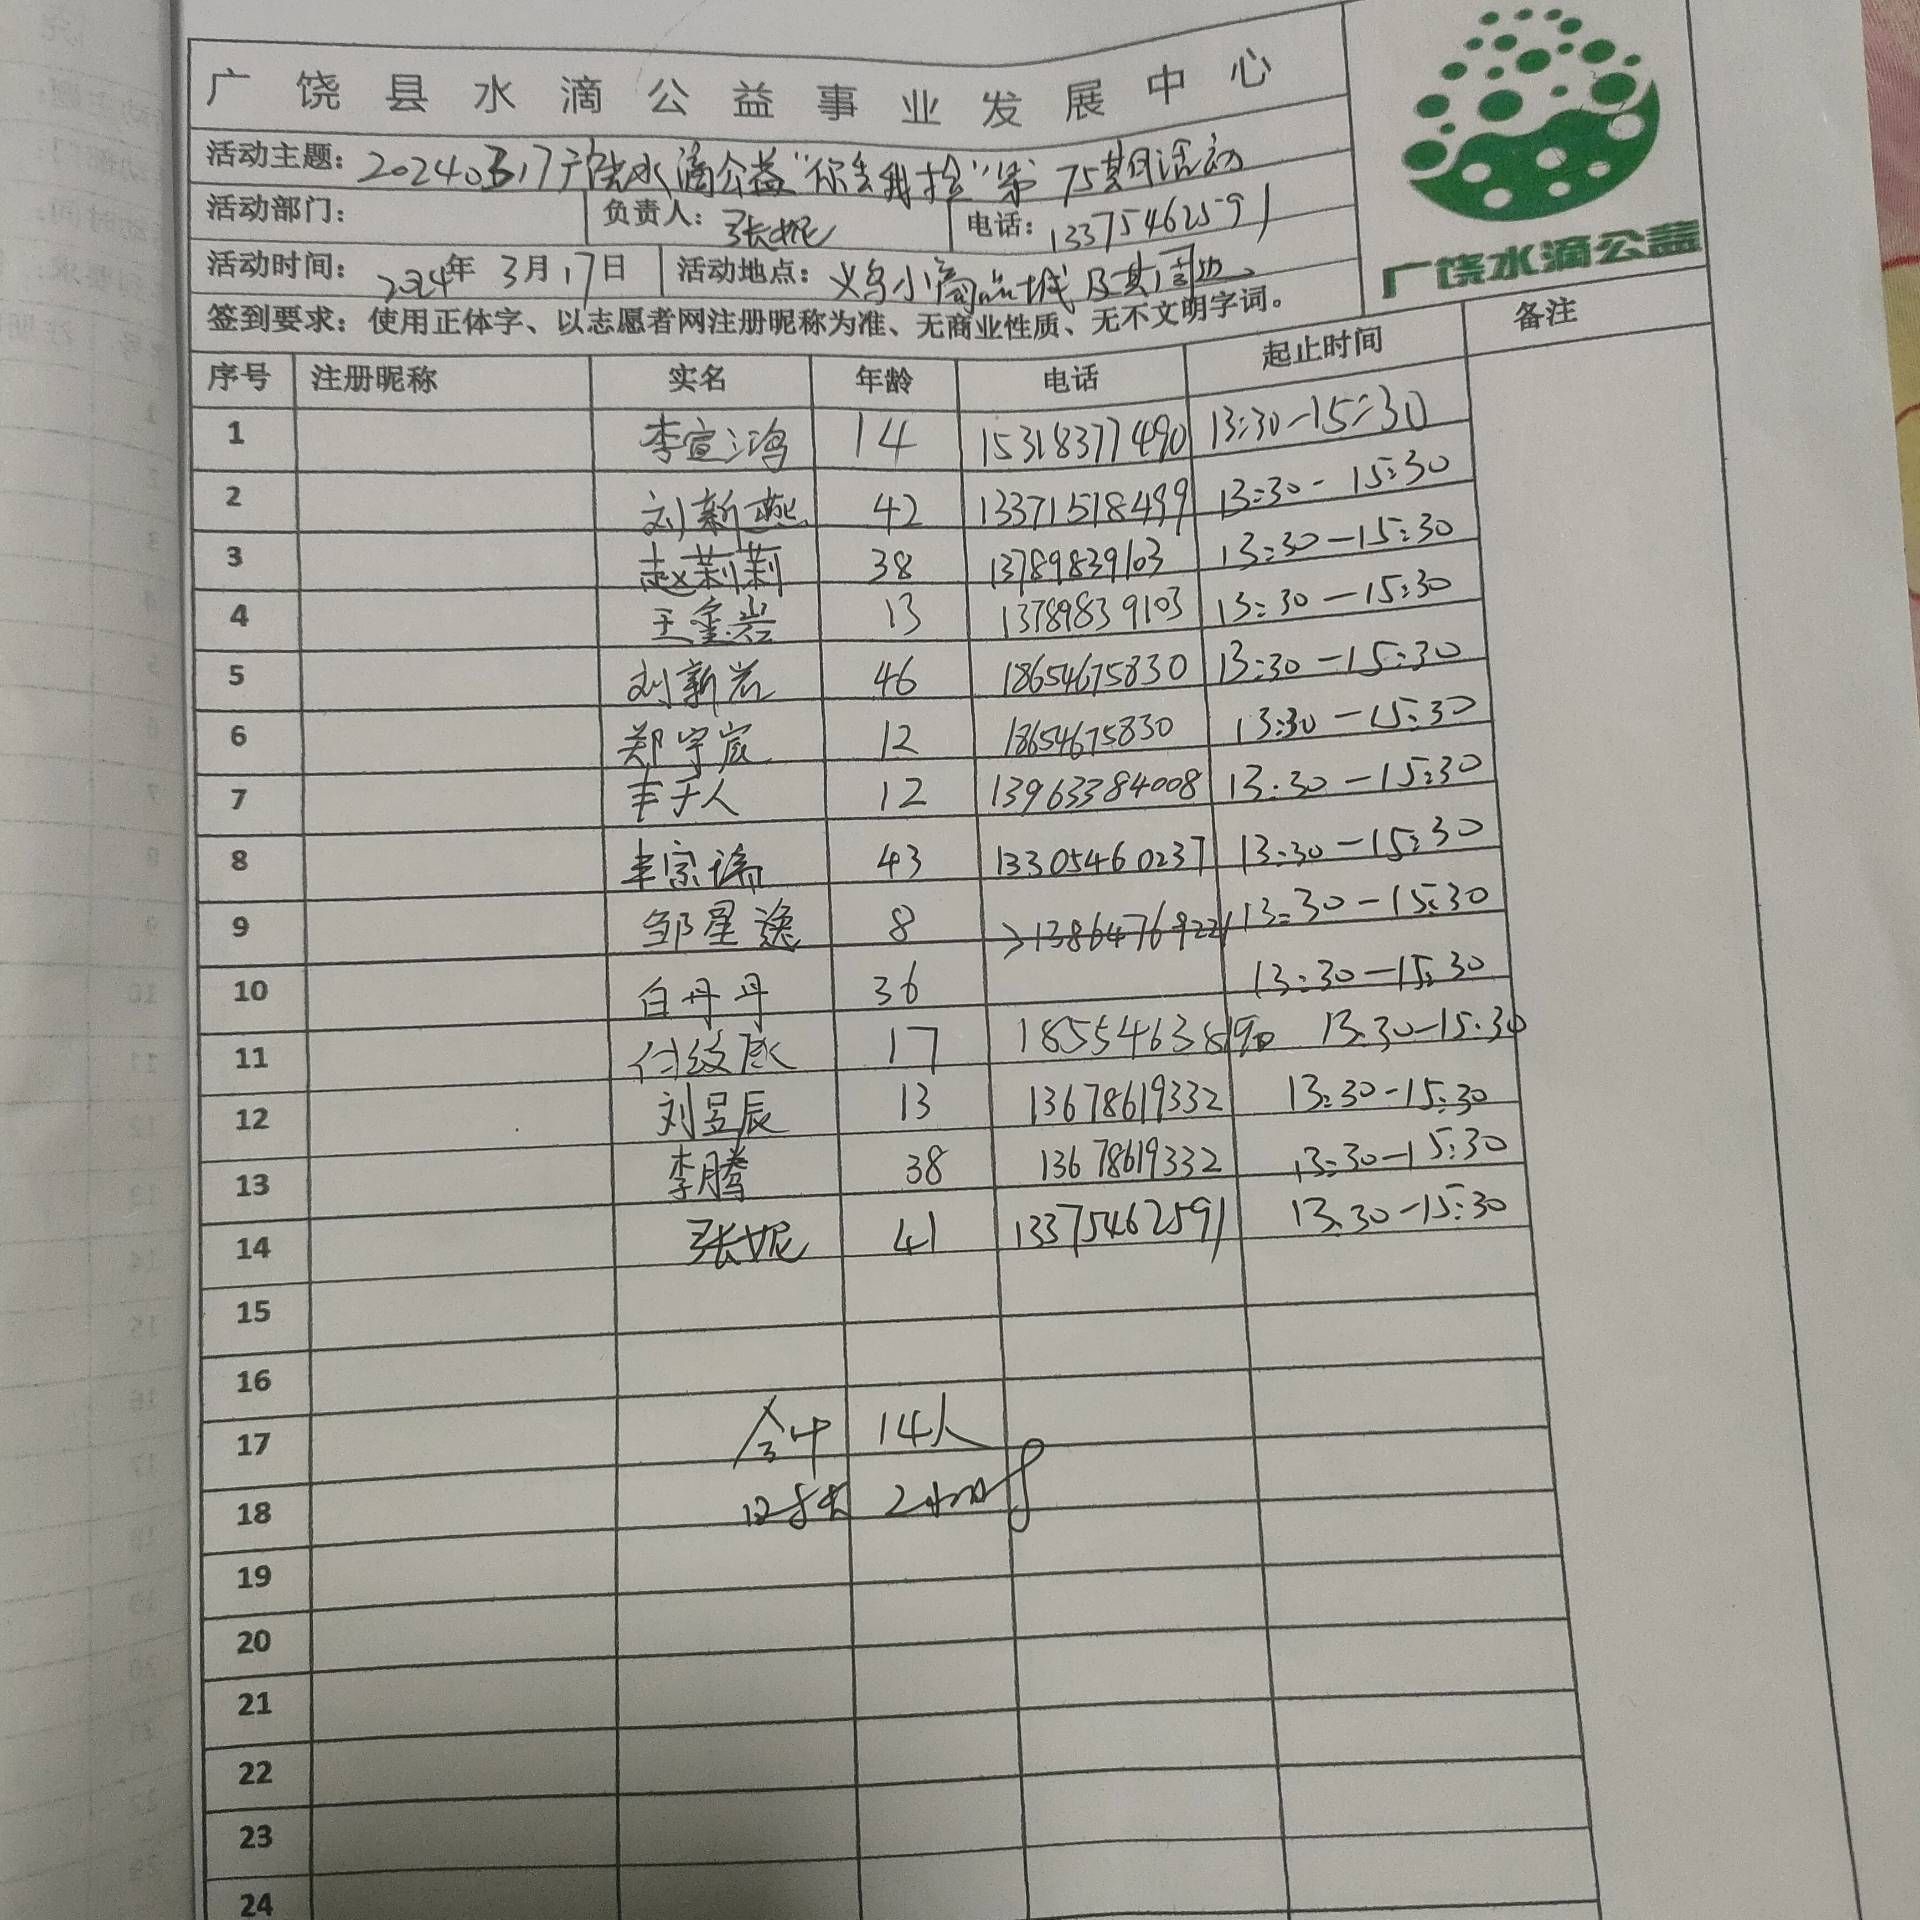 广饶县水滴公益事业发展中心
广饶水滴公益
活动主题：20240317广饶水滴公益“你丢我捡”第75期活动
活动部门： 负责人：张妮 电话：13375462591
活动时间：2024年3月17日 活动地点：义乌小商品城及其周边
签到要求：使用正体字、以志愿者网注册昵称为准、无商业性质、无不文明字词。
序号 注册昵称 实名 年龄 电话 起止时间 备注
1 李宣鸿 14 15318377490 13:30-15:30
2 刘新燕 42 13371518499 13:30-15:30
3 赵莉莉 38 13789839103 13:30-15:30
4 王鑫岩 13 13789839103 13:30-15:30
5 刘新岩 46 18654675830 13:30-15:30
6 郑宇宸 12 18654675830 13:30-15:30
7 丰于人 12 13963384008 13:30-15:30
8 丰宗瑞 43 13305460237 13:30-15:30
9 邹星逸 8 13864769221 13:30-15:30
10 白丹丹 36 13:30-15:30
11 付纹 17 18554638190 13:30-15:30
12 刘昱辰 13 13678619332 13:30-15:30
13 李腾 38 13678619332 13:30-15:30
14 张妮 41 13375462591 13:30-15:30
15
16
17 合计 14人
18 时长 2小时
19
20
21
22
23
24